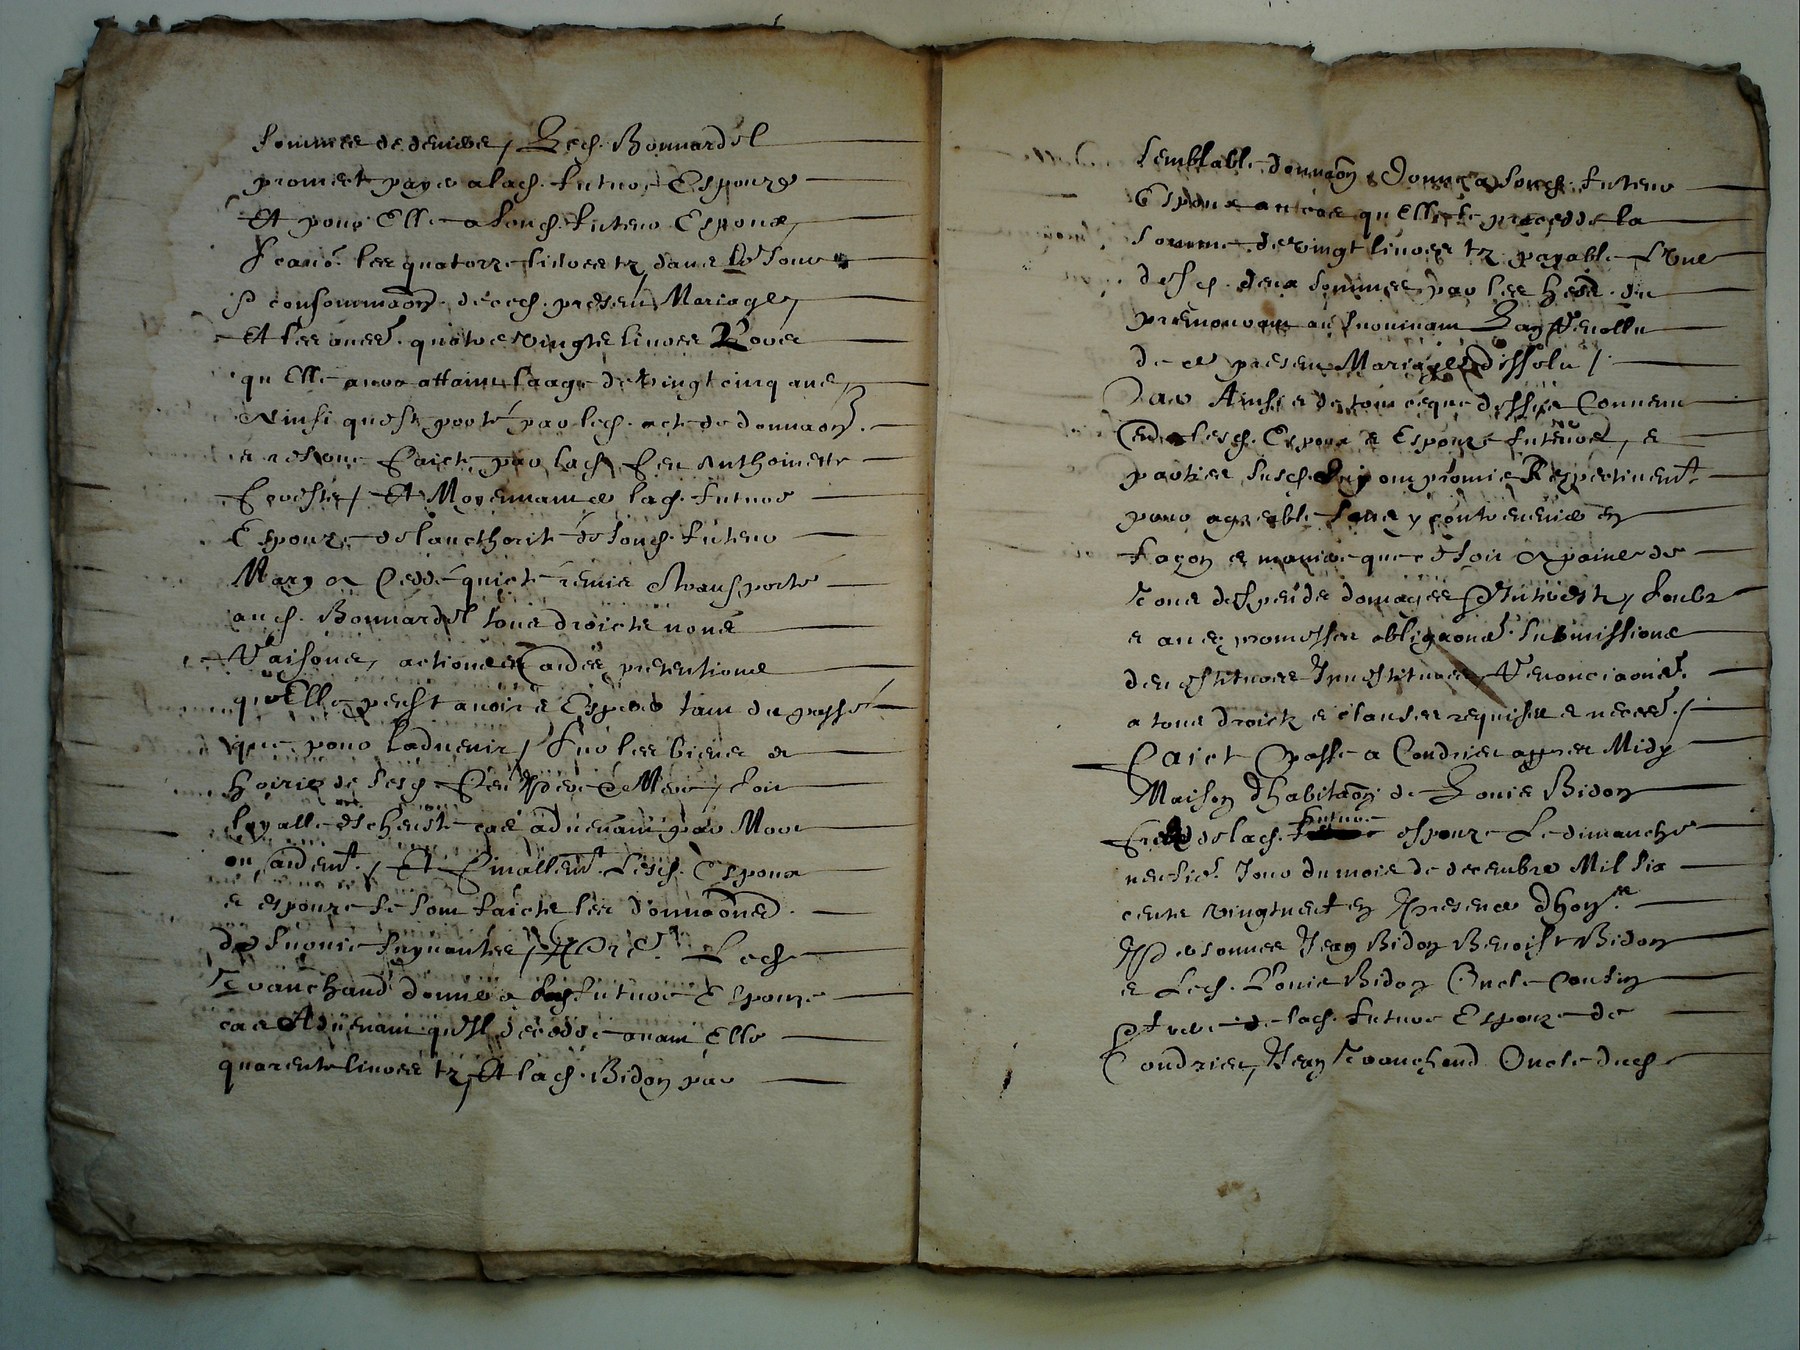 sommes de deniers, Led. Bonnardel
promect payer a lad. future Espouze
Et pour Elle a sond. futeur Espoux,
Scavoir les quatorze livres tz dans Le Jour
consommaon. de ced. presen Mariage,
Et les aues. quatre vingts livres Lors
qu Elle aura attaint laage de vingt cinq ans,
Ainsi quest porté par led. acte de donnaon.
a resoue faict par lad. feu Anthoinette
Et Moyennant ce lad. future
Espouze de laucthorité de sond. futeur
Mary a Ceddé quicté remis & transporté
aud. Bonnardel tous droicts noms
Raisons, actiones pretentions
qu Elle peust avoir & Esperer tant du passé
que pour ladvenir, sur les biens &
hoirie de sesd. feu Pere & Mere, soit
loyalle escheuste cas advenant par Mort
ou audemt., Et finallemt. Lesd. Espoux
& espouze se sont faicts les donnaons
de survie suyvantes, Led.
Tranchand donne a lad. future Espouze
cas Advenant qu Il decedde avant Elle
quarente livres tz, Et lad. Bidon par
semblable donnaon donne a sond. futeur
Espoux an cas qu Elle le precedde la
somme de vingt livres tz payable L'une
desd. deux sommes par les hers. du
premourant au survivant Lay Venollu
de ce presen Mariage dissolu /.
Par Ainsi & de tout ce que dessus Convenu
lesd. Espoux & Espouze futeurs, &
parties susd. ont promis Respectivemt.
pour agreable sans y contrevenir en
façon & maniere que ce soit A peine de
Tous despens domages & Interestz, soubz
& aues promesses obligaons. submissions
destitues Renonciaons.
a tous droictz & clauses requises & necess. /.
Faict & Passé a Condrieu appres Midy
Maison d'habitaon de Louis Bidon
frere de lad. future espouze Le dimanche
neufies. Jour du mois de decembre Mil six
cents vingt neuf en Presence d'hon.
Personnes Jean Bidon Benoist Bidon
& Led. Louis Bidon Oncle Cousin
& frere de lad. future Espouze de
Condrieu, Jean Tranchand Oncle dud.